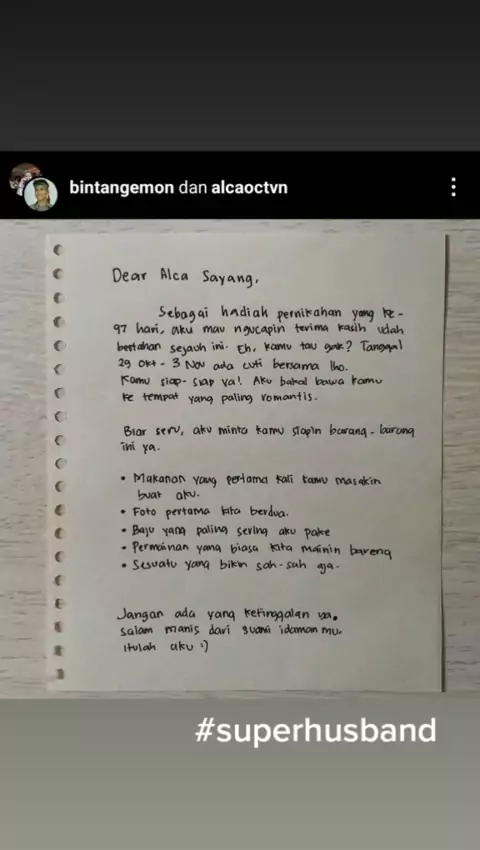 bintangemon dan alcaoctvn
Dear Alca Sayang,
Sebagai hadiah pernikahan yang ke-
97 hari, aku mau ngucapin terima kasih udah
bertahan sejauh ini. Eh, kamu tau gak? Tanggal
29 Okt - 3 Nov ada cuti bersama lho.
Kamu siap-siap ya! Aku bakal bawa kamu
ke tempat yang paling romantis.
Biar seru, aku minta kamu siapin barang-barang
ini ya.
• Makanan yang pertama kali kamu masakin
buat aku.
• Foto pertama kita berdua.
• Baju yang paling sering aku pake
• Permainan yang biasa kita mainin bareng
• Sesuatu yang bikin sah-sah aja.
Jangan ada yang ketinggalan ya.
Salam manis dari suami idamanmu.
itulah aku :)
#superhusband